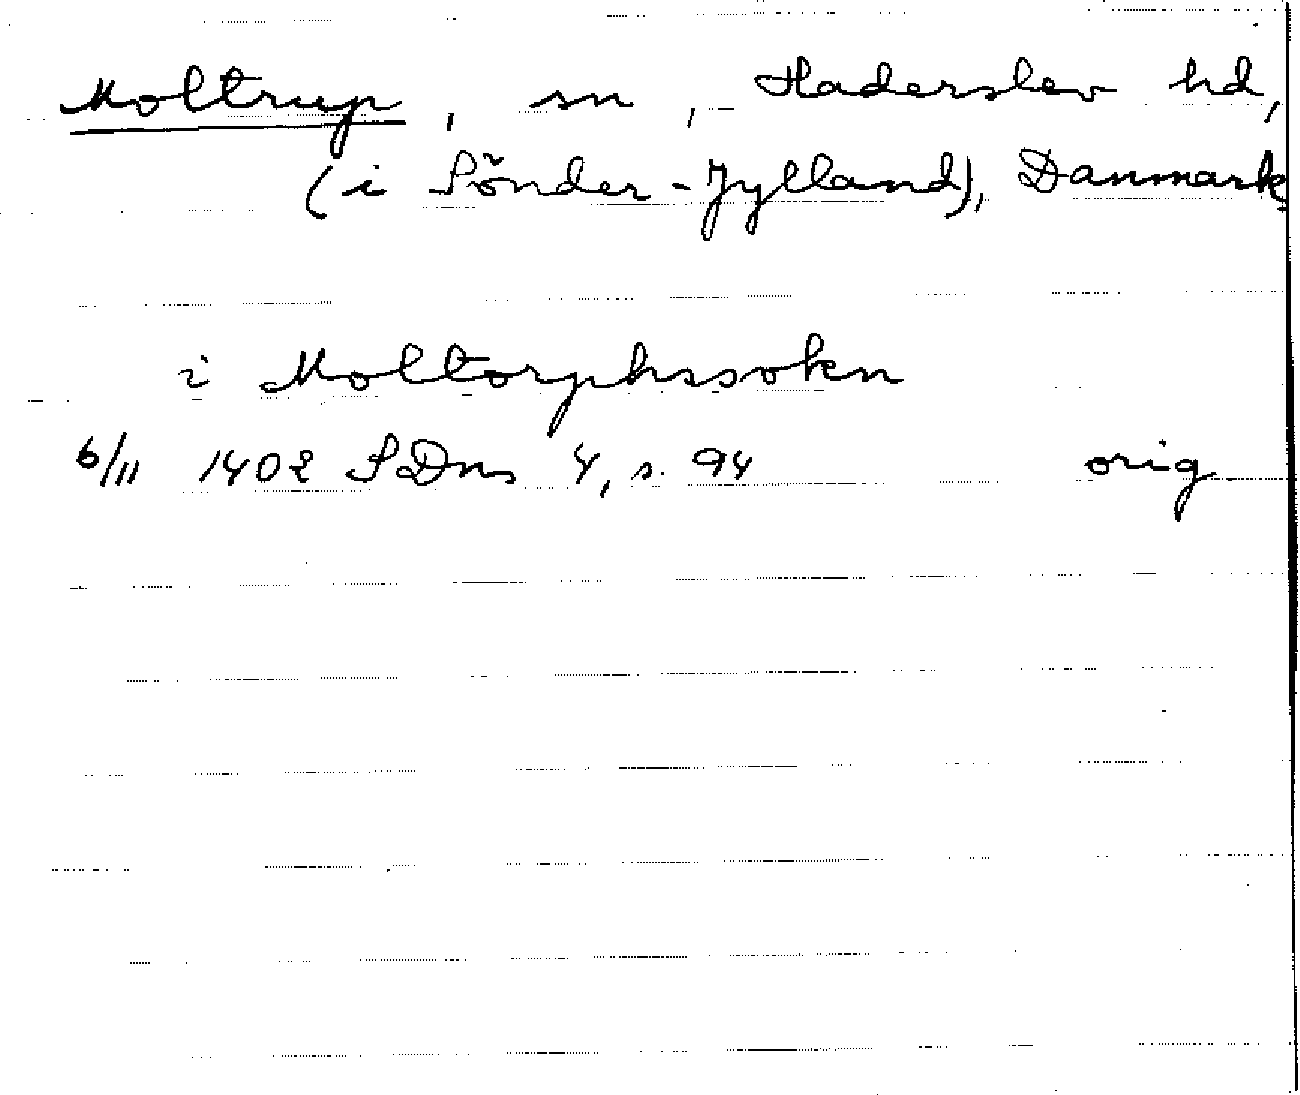 Moltrup, sn, Haderslev hd,
(i Sönder-Jylland), Danmark
i Moltorphssokn
6/11 1402 SDns 4, s. 94 orig